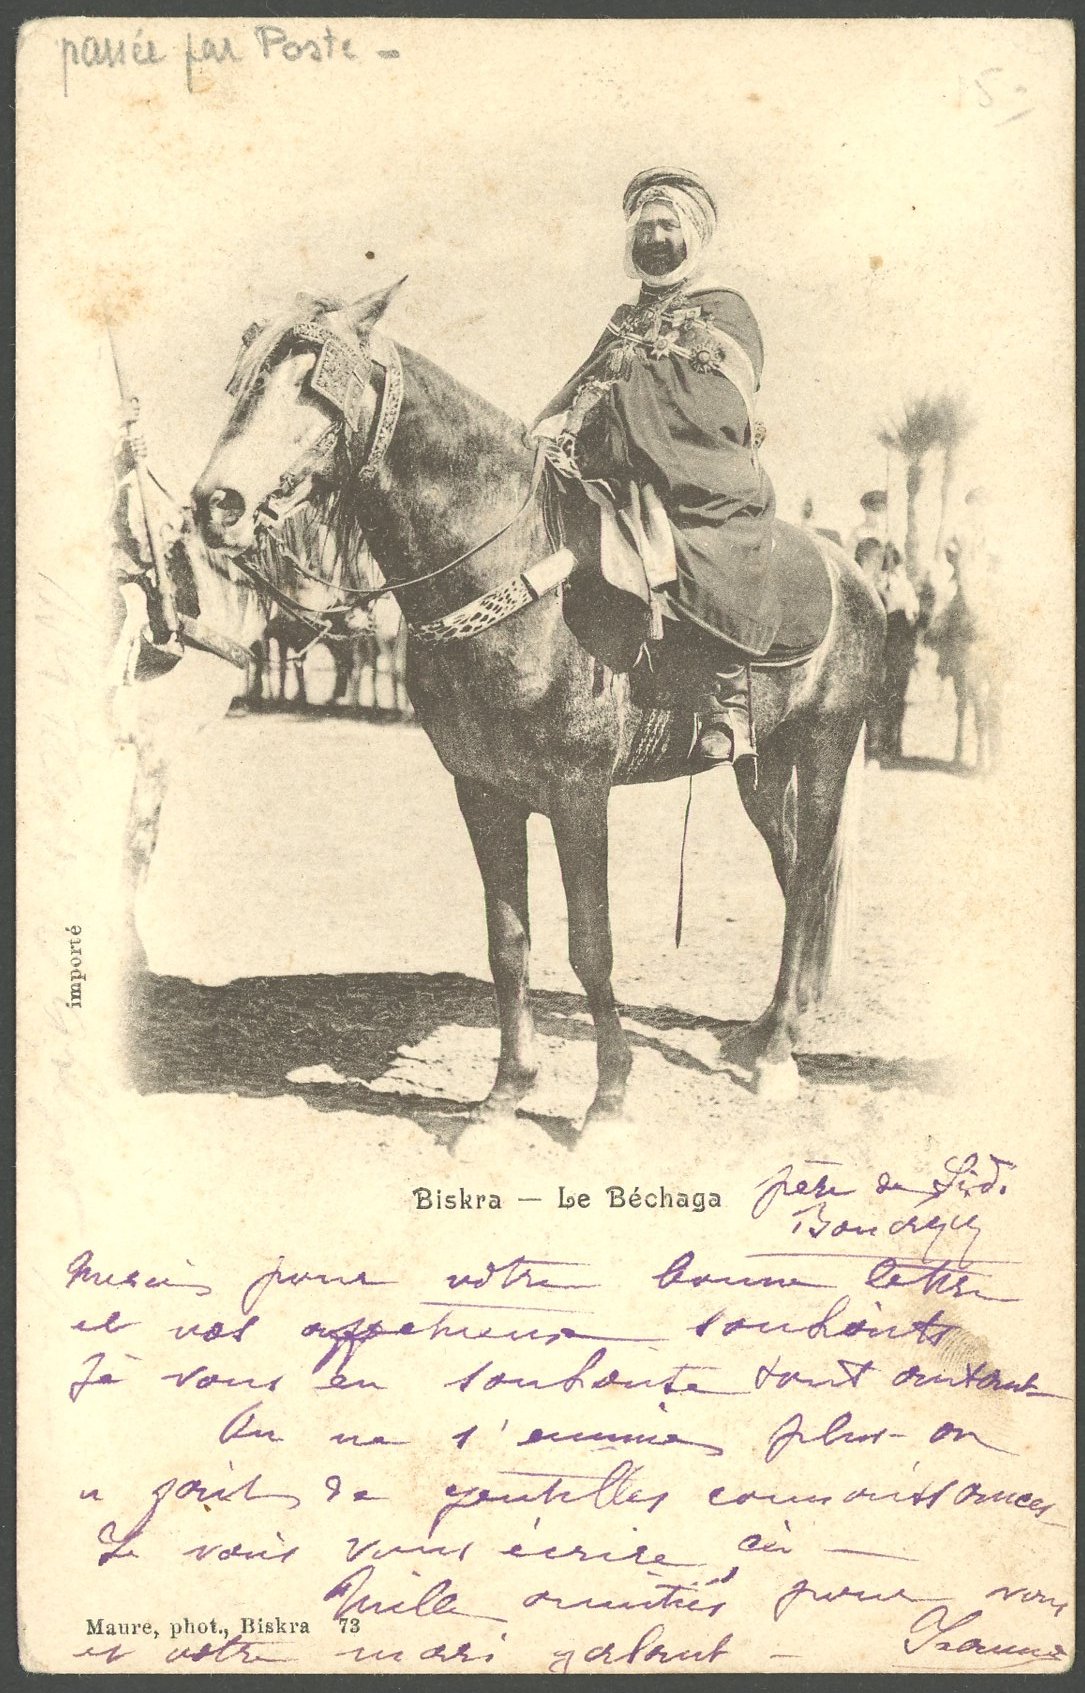 passée par Poste -
15.-
importé
Biskra — Le Béchaga
père de Sid.
Merci pour votre bonne lettre
et vos affectueux souhaits
Je vous en souhaite tout autant
On ne s'ennuie plus on
a fait de gentilles connaissances
Je vais vous écrire
Mille amitiés pour vous
Maure, phot., Biskra 73
et votre mari galant -